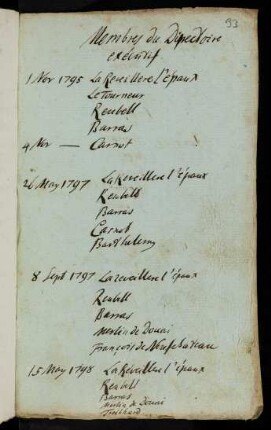 93
Membres du Directoire
exécutif
1 Nov 1795 La Reveillere l'épaux
Le Tourneur
Reubell
Barras
4 Nov — Carnot
26 May 1797 La Reveillere l'épaux
Reubell
Barras
Carnot
Barthelemy
8 Sept 1797 Lareveillere l'épaux
Reubell
Barras
Merlin de Douai
François de Neufchateau
15 May 1798 La Reveillere l'épaux
Reubell
Barras
Merlin de Douai
Treilhard